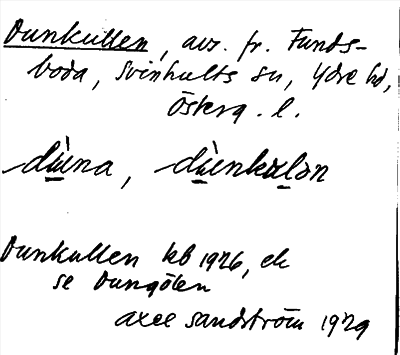 Dunkullen, avs. fr. Funds-
boda, Svinhults sn, Ydre hd,
Österg. l.
dùna, dùnkulən
Dunkullen kb 1926, ek
se Dungölen
Axel Sandström 1929